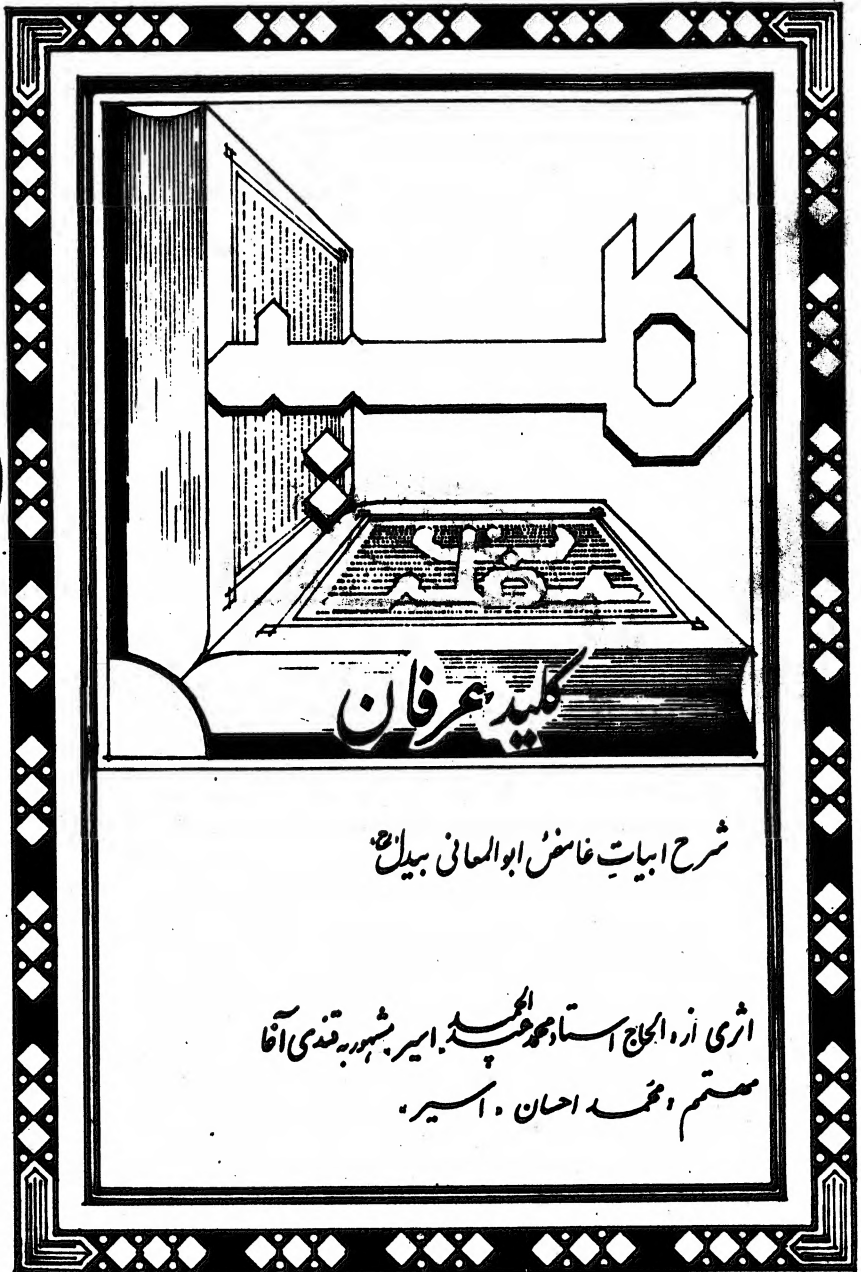 کلید
عرفان
کلید عرفان
شرح ابیاتِ غامض ابوالمعانی بیدل رح
اثری از: الحاج استاد محمد عبدالحمید اسیر مشهور به قندی آقا
مهتمم: محمد احسان «اسیر»